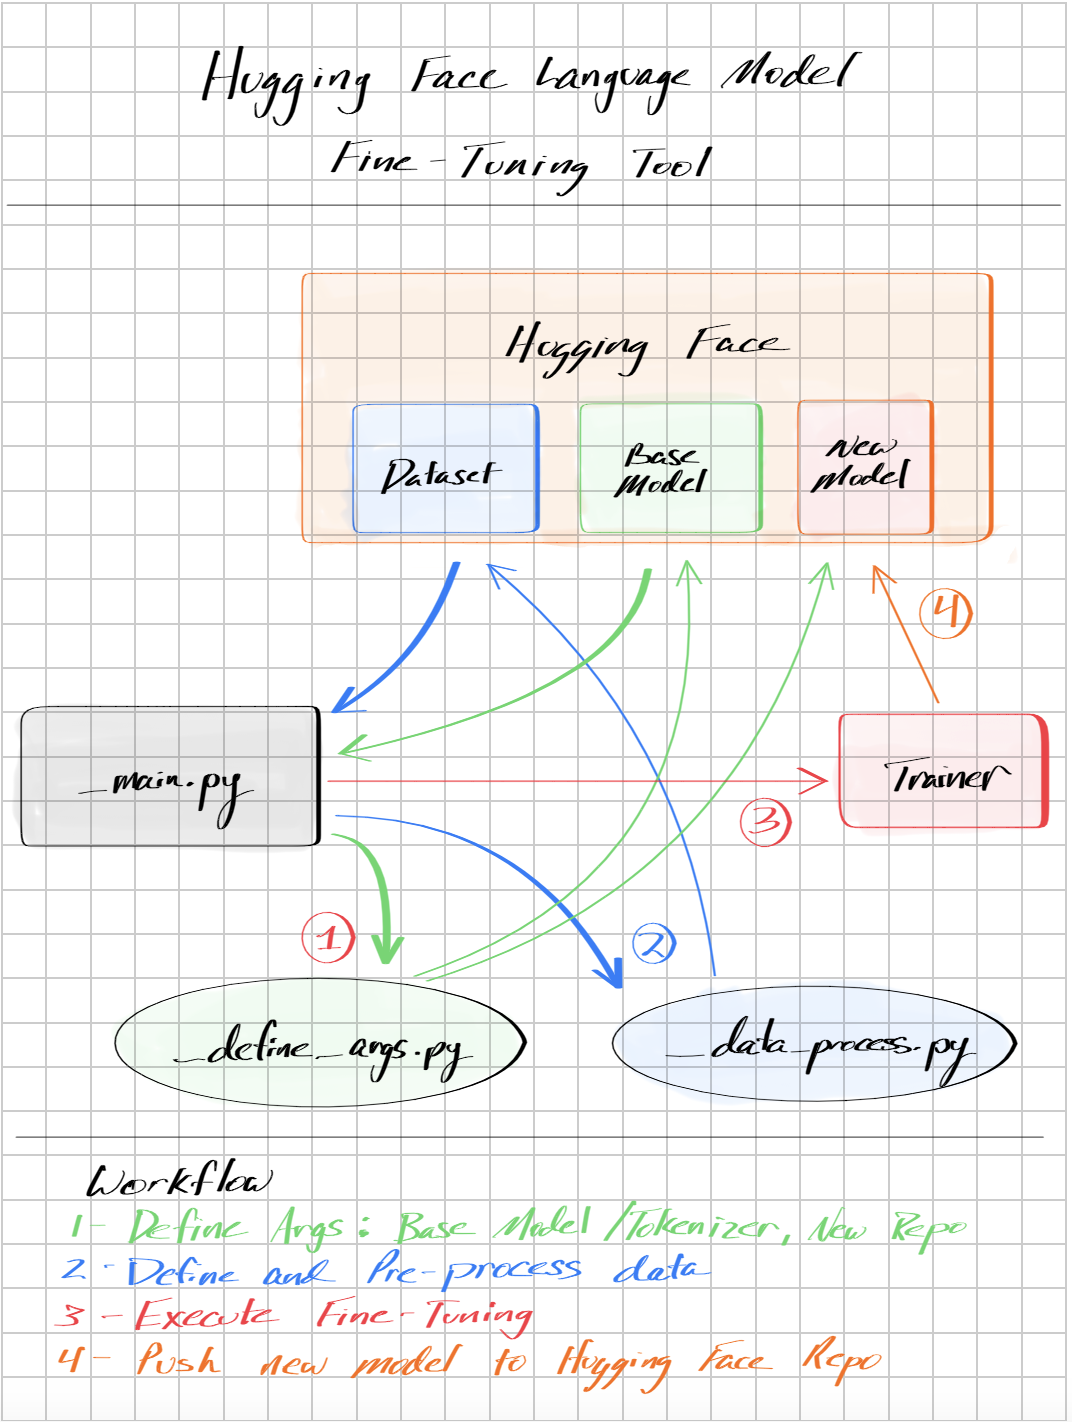 Hugging Face Language Model
Fine-Tuning Tool
Hugging Face
Dataset
Base
Model
New
Model
4
_main.py
Trainer
3
1
2
_define_args.py
_data_process.py
Workflow
1- Define Args: Base Model/Tokenizer, New Repo
2- Define and Pre-process data
3- Execute Fine-Tuning
4- Push new model to Hugging Face Repo